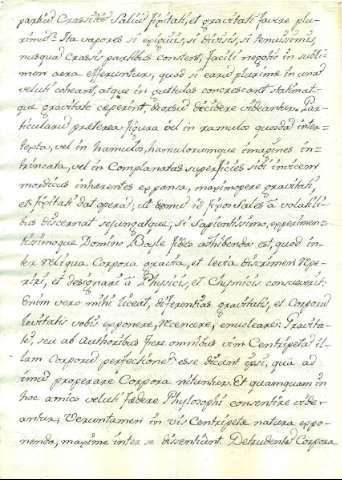 partium Crassities Salium fixitati, et gravitati favere plu-
rimum? Ita vapores si exiguis, si divisis, si tenuissimis,
nusquam crassis partibus constent, facili negotio in subli-
mem aera efferuntur, quod si earum plurime in unum
veluti coheant, atque in guttulas concrescant statim at-
que gravitate ceperint, deorsum decidere videantur. Par-
ticularum preterea figura vel in ramulos quosdam inter-
texta, vel in hamulos, hamulorumque imagines in-
trincata, vel in Complanatas superficies sibi invicem
mordicus inherentes expansa, maximopere gravitati,
et fixitati dat operam; ut homines fixa
discernat sejungatque; si Sapientissimo, experimen-
Domino Boyle fides adhibenda est, quod in-
ter reliqua Corpora gravia, et levia discrimen repe-
riri, et designare à Physicis, et Chymicis consuevit.
Enim vero mihi liceat, diferentias gravitatis, et Corporum
levitatis vobis exponere, recencere, enucleare: Gravita-
tem, seu ab Authoribus fere omnibus vim Centripetam il-
lam Corporum perfectionem esse dicunt ipsi, qua ad
imum properare Corpora nituntur. Et quamquam in
hoc amico veluti fædere Phylosophi consentire vide-
antur; Veruntamen in vis Centripeta natura expo-
nenda, maxime inter se dissentiunt. Detrudenda Corpora